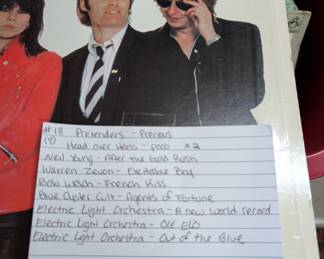 #18 Pretenders - Precious
(9) Head over Heels - poco x2
Neil Young - After the Gold Rush
Warren Zevon - Excitable Boy
Bob Welch - French Kiss
Blue Oyster Cult - Agents of Fortune
Electric Light Orchestra - A new world record
Electric Light Orchestra - Olé ELO
Electric Light Orchestra - Out of the Blue